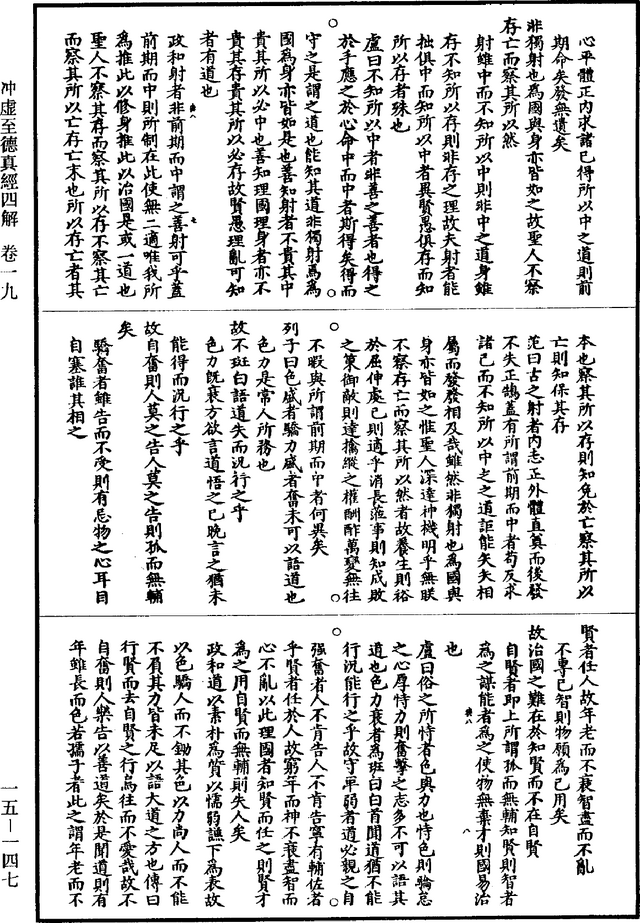 冲虛至德真經四解 卷一九
一五—一四七
心平體正內求諸已得所以中之道則前
期命矣發無遺矣
非獨射也為國與身亦皆如之故聖人不察
存亡而察其所以然
射雖中而不知所以中則非中之道身雖
存不知所以存則非存之理故夫射者能
拙俱中而知所以中者異賢愚俱存而知
所以存者殊也
盧曰不知所以中者非善之善者也得之
於手應之於心命中而中者斯得矣得而
守之是謂之道也能知其道非獨射焉為
國為身亦皆如是也善知射者不貴其中
貴其所以必中也善知理國理身者亦不
貴其存貴其所以必存故賢愚理亂可知
者有道也
政和射者非前期而中謂之善射可乎蓋
前期而中則所制在此使無二適唯我所
為推此以修身推此以治國是或一道也
聖人不察其存而察其所以存不察其亡
而察其所以亡存亡末也所以存亡者其
本也察其所以存則知免於亡察其所以
亡則知保其存
范曰古之射者內志正外體直莫而後發
不失正鵠蓋有所謂前期而中者苟反求
諸已而不知所以中之之道詎能矢矢相
屬而發發相及哉雖然非獨射也為國與
身亦皆如之惟聖人深達神機明乎無朕
不察存亡而察其所以然者故養生則裕
於屈伸處已則適乎消長蒞事則知成敗
之策御敵則達擒縱之權酬酢萬變無往
不暇與所謂前期而中者何異矣
列子曰色盛者驕力盛者奮未可以語道也
色力是常人所務也
故不班白語道失而況行之乎
色力既衰方欲言道悟之已晚言之猶未
能得而況行之乎
故自奮則人莫之告人莫之告則孤而無輔
矣
驕奮者雖告而不受則有忌物之心耳目
自塞誰其相之
賢者任人故年老而不衰智盡而不亂
不專已智則物願為已用矣
故治國之難在於知賢而不在自賢
自賢者即上所謂孤而無輔知賢則智者
為之謀能者為之使物無棄才則國易治
也
盧曰俗之所恃者色與力也恃色則驕怠
之心厚恃力則奮擊之志多不可以語其
道也色力衰者為班白白首聞道猶不能
行況能行之乎故守卑弱者道必親之自
强奮者人不肯告人不肯告寧有輔佐者
乎賢者任於人故窮年而神不衰盡智而
心不亂以此理國者知賢而任之則賢才
為之用自賢而無輔則失人矣
政和道以素朴為質以懦弱謙下為表故
以色驕人而不鋤其色以力尚人而不能
不負其力皆未足以語大道之方也傳曰
行賢而去自賢之行焉往而不愛哉故不
自奮則人樂告以善道矣於是聞道則有
年雖長而色若孺子者此之謂年老而不